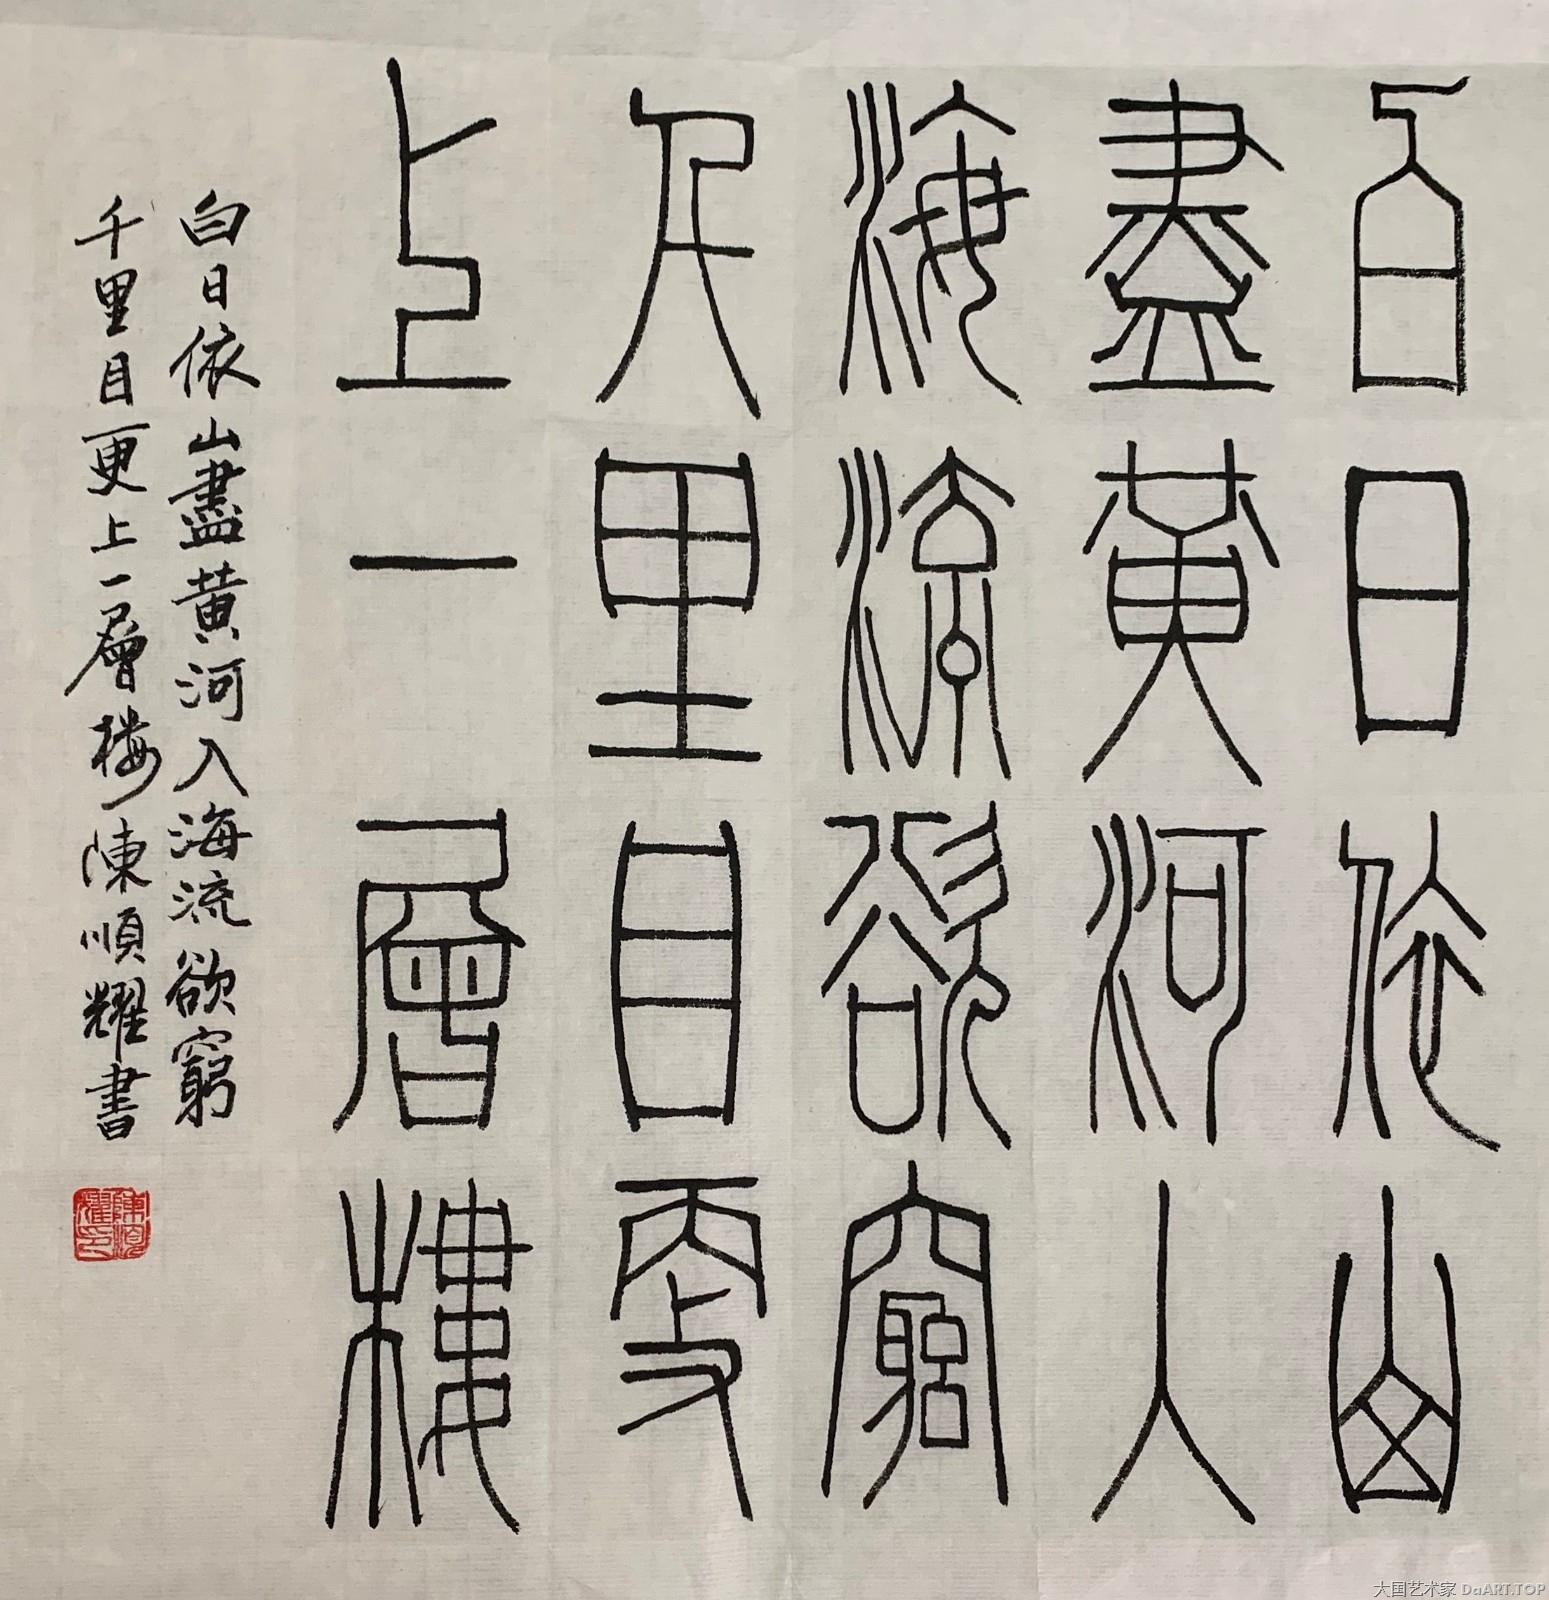 白日依山
盡黃河入
海流欲窮
千里目更
上一層樓
白日依山盡黄河入海流欲窮
千里目更上一層樓陳順耀書
陳順耀印
大国艺术家 DaART.TOP